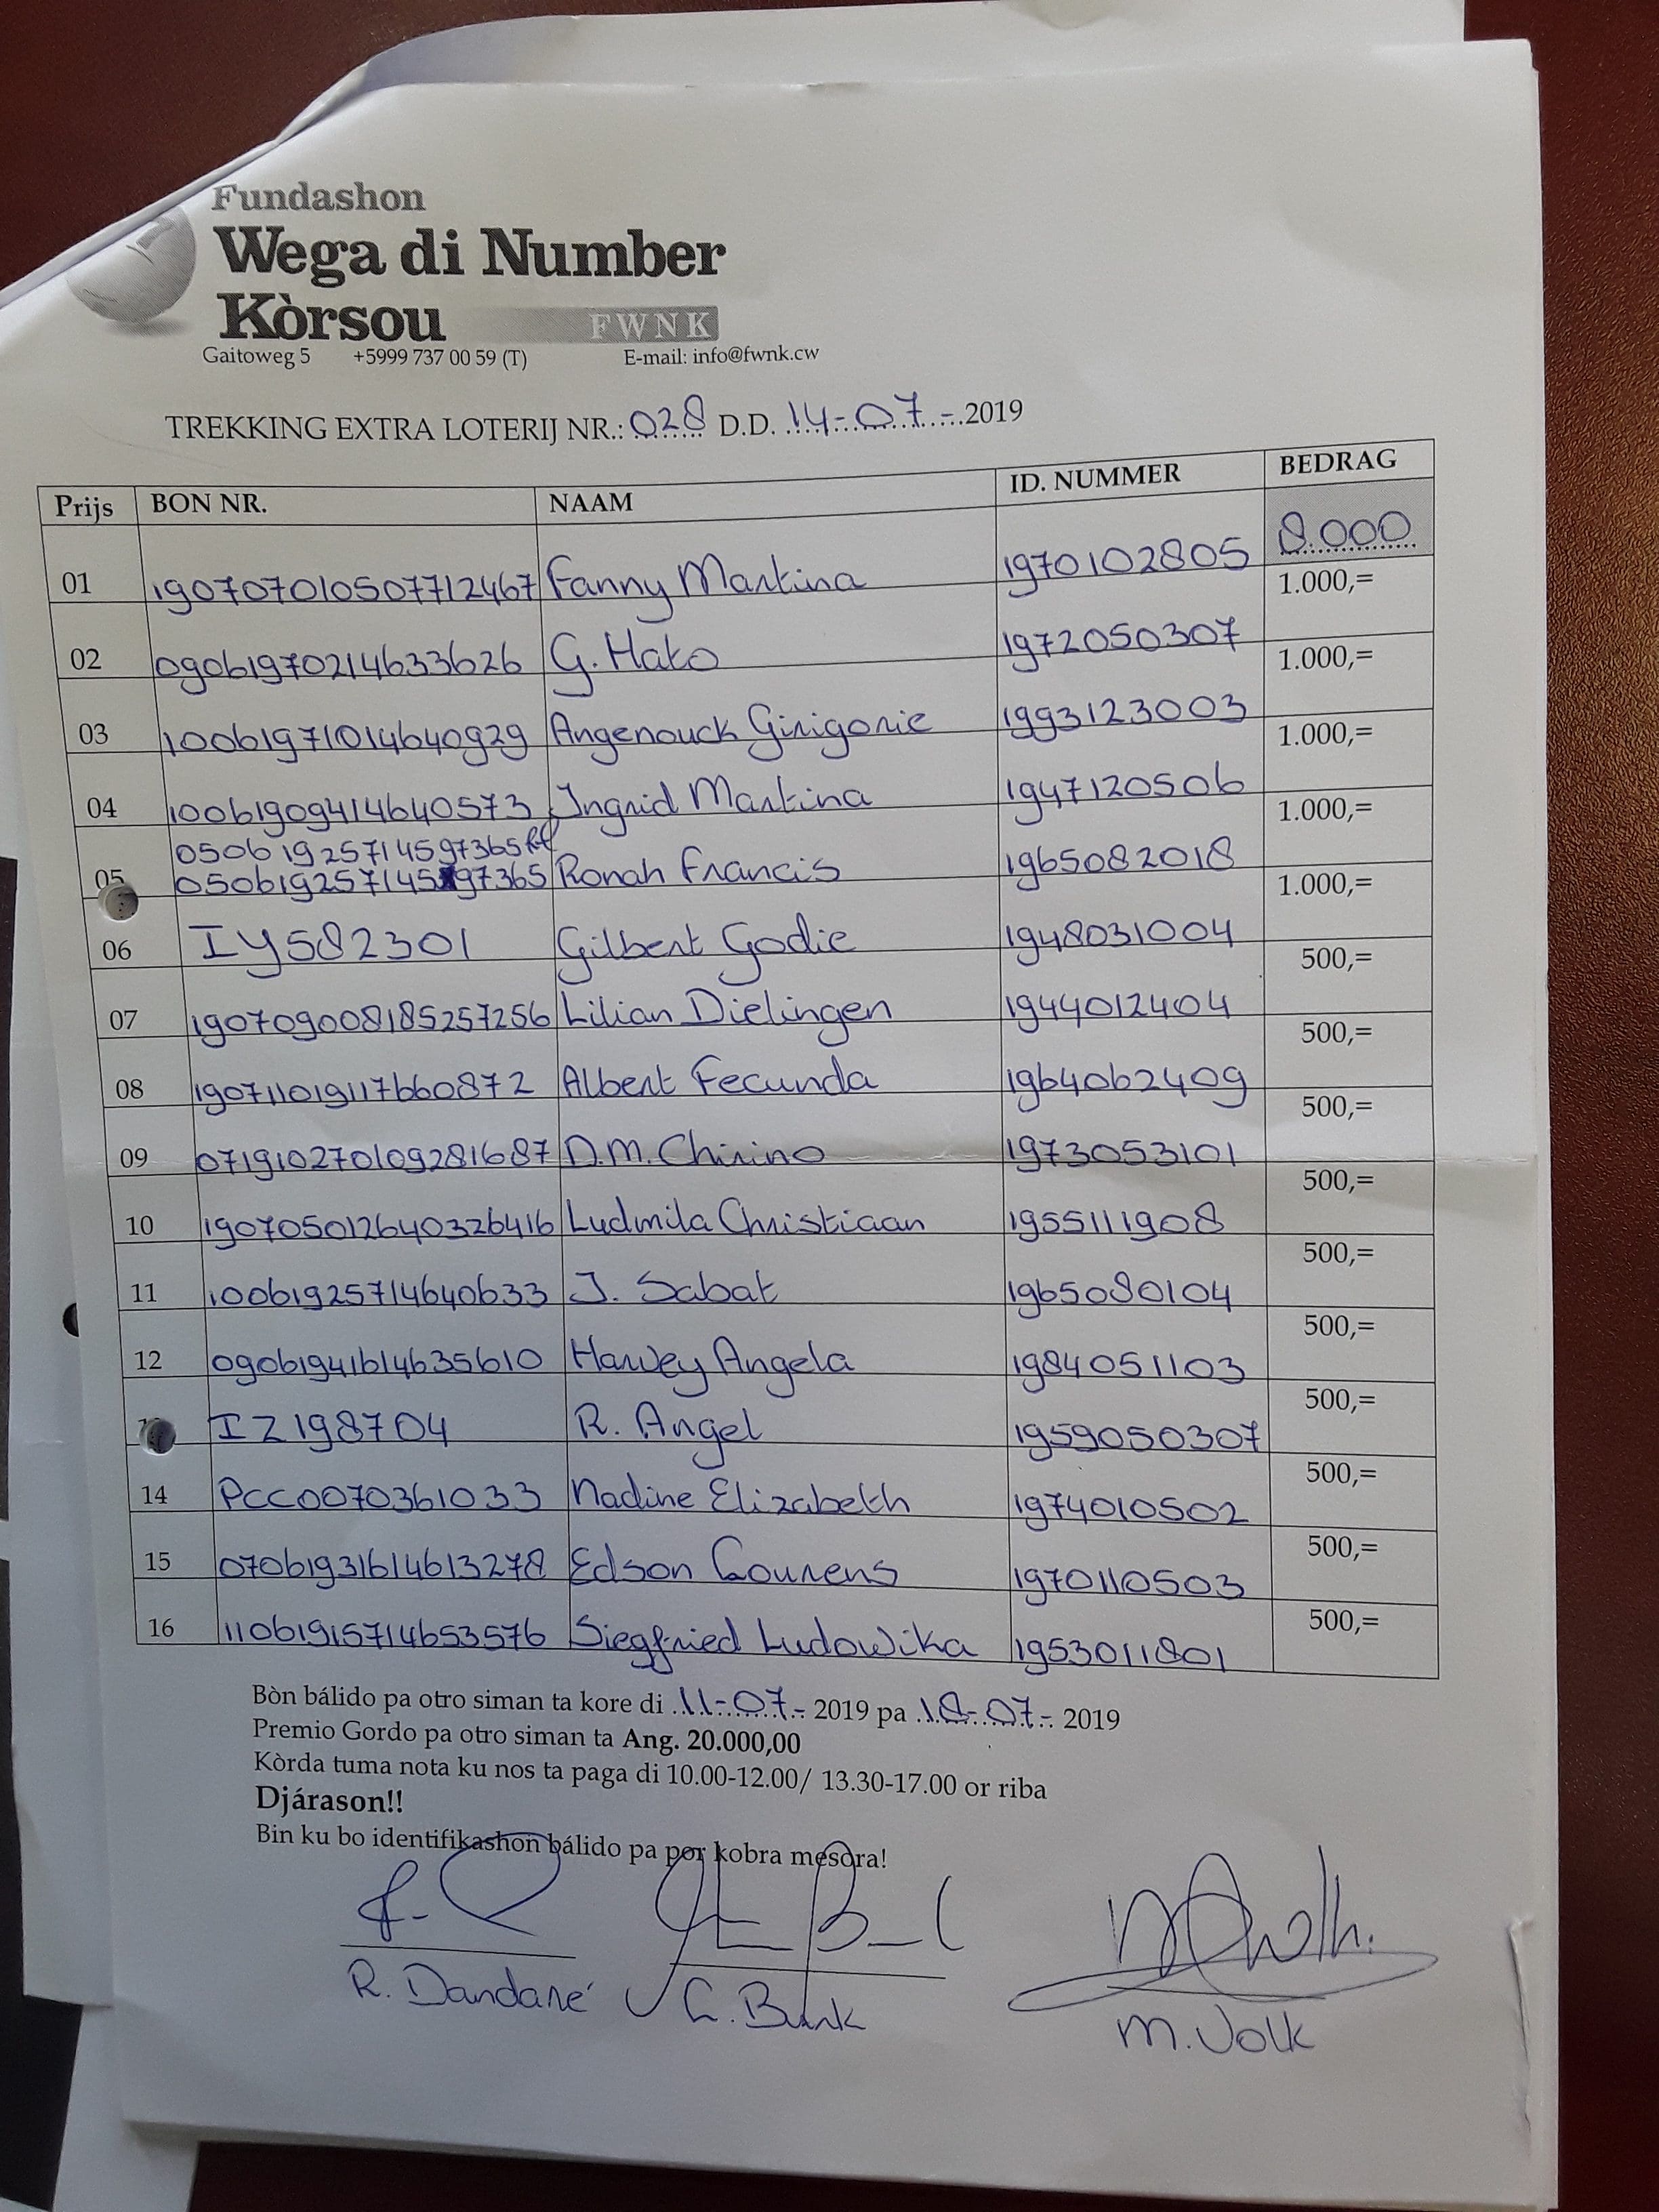 Fundashon
Wega di Number
Kòrsou FWNK
Gaitoweg 5 +5999 737 00 59 (T) E-mail: info@fwnk.cw
TREKKING EXTRA LOTERIJ NR.: 028 D.D. 14-07-2019
Prijs BON NR. NAAM ID. NUMMER BEDRAG
01 190707010507712467 Fanny Martina 1970102805 8.000
02 09061970214633626 G. Hato 1972050307 1.000,=
03 10061971014640929 Angenouck Girigorie 1993123003 1.000,=
04 10061909414640573 Ingrid Martina 1947120506 1.000,=
05061925714597365
05 05061925714597365 Ronah Francis 1965082018 1.000,=
06 IY582301 Gilbert Godie 1948031004 1.000,=
07 190709008185257256 Lilian Dielingen 1944012404 500,=
08 190711019117660872 Albert Fecunda 1964062409 500,=
09 071910270109281687 D.M. Chirino 1973053101 500,=
10 190705012640326416 Ludmila Christiaan 1955111908 500,=
11 10061925714640633 J. Sabat 1965080104 500,=
12 09061941614635610 Harvey Angela 1984051103 500,=
IZ198704 R. Angel 1959050307 500,=
14 PCC0070361033 Nadine Elizabeth 1974010502 500,=
15 07061931614613278 Edson Courens 1970110503 500,=
16 11061915714653576 Siegfried Ludowika 1953011801 500,=
500,=
Bòn bálido pa otro siman ta kore di 11-07- 2019 pa 18-07- 2019
Premio Gordo pa otro siman ta Ang. 20.000,00
Kòrda tuma nota ku nos ta paga di 10.00-12.00/ 13.30-17.00 or riba
Djárason!!
Bin ku bo identifikashon bálido pa por kobra mesora!
R. Dandaré C. Bunk M. Volk